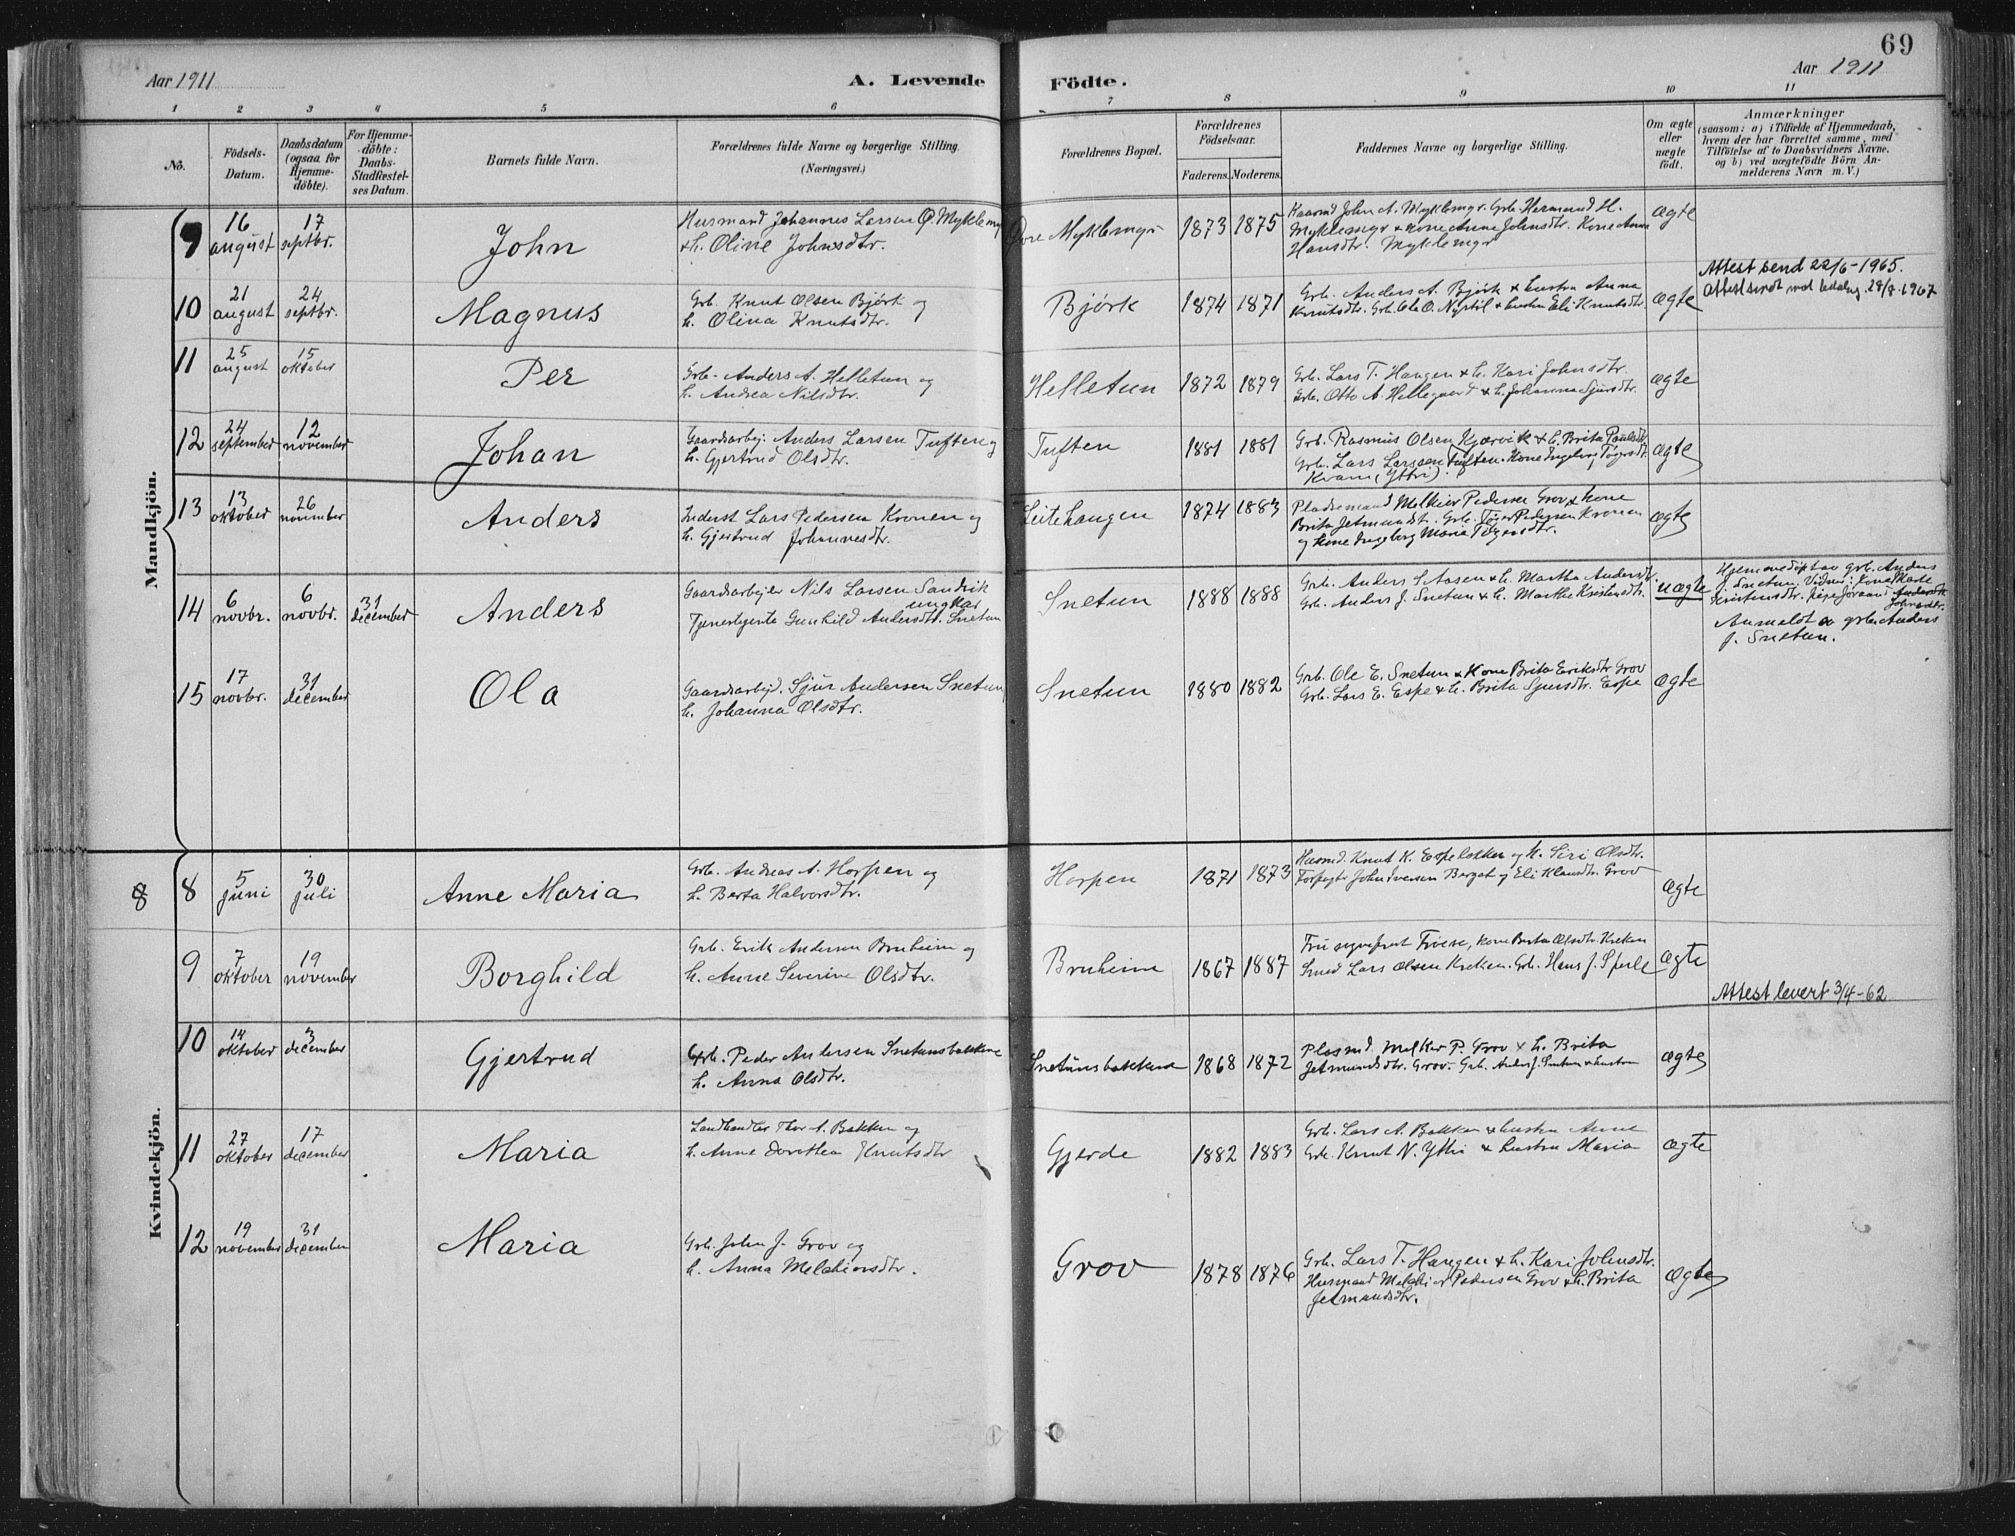 69
Aar 1911
A. Levende
Födte.
Aar 1911
1 2 3 4 5 6 7 8 9 10 11
No.
Födsels-Datum.
Daabsdatum (ogsaa for Hjemme-döbte).
For Hjemme-döbte: Daabs-Stadfæstel-ses Datum.
Barnets fulde Navn.
Forældrenes fulde Navne og borgerlige Stilling.
(Næringsvei.)
Forældrenes Bopæl.
Forældrenes Födselsaar.
Faderens. Moderens.
Faddernes Navne og borgerlige Stilling.
Om ægte eller uægte födt.
Anmærkninger
(saasom: a) i Tilfælde af Hjemmedaab,
hvem der har forrettet samme, med
Tilföielse af to Daabsvidners Navne,
og b) ved uægtefödte Börn An-
melderens Navn m. V.)
Mandkjön.
9 16 august 17 septbr. John
Husmand Johannes Larsen Myklemyr
& h. Oline Johnsdtr.
Myklemyr 1873 1875
Kaarmd John A. Myklemyr. Grb. Hermund H.
Myklemyr & kone Anne Johnsdtr. Kone Anna
Hansdtr. Myklemyr
ægte
10 21 august 24 septbr. Magnus
Grb. Knut Olsen Bjørk og
h. Olina Knutsdtr.
Bjørk 1874 1871
Grb. Anders A. Bjørk & hustru Anna
Knutsdtr. Grb. Ola O. Nystöl & hustru Eli Knutsdtr.
ægte
Attest send 22/6-1965.
Attest sendt
11 25 august 15 oktober Per
Grb. Anders A. Helletun og
h. Andrea Nilsdtr.
Helletun 1872 1879
Grb. Lars T. Haugen & h. Kari Johnsdtr.
Grb. Otto A. Hellegaard & h. Johanna Sjursdtr.
ægte
12 24 september 12 november Johan
Gaardsarbej. Anders Larsen Tuften og
h. Gjertrud Olsdtr.
Tuften 1881 1881
Grb. Rasmus Olsen Kjærvik & h. Brita Paulsdtr
Grb. Lars Larssen Tuften. Kone Ingeborg Tögersdtr.
Kvam (Ytri).
ægte
13 13 oktober 26 november Anders
Inderst Lars Pedersen Kronen og
h. Gjertrud Johannesdtr.
Leitehaugen 1874 1883
Pladsemand Melkior Pedersen Grov & kone
Brita Jetmundsdtr. Grb. Töger Pedersen Kronen
og kone Ingeborg Maria Tögersdtr.
ægte
14 6 novbr. 6 novbr. 31 december Anders
Gaardsarbejder Nils Larsen Sandvik
ungkar
Tjenestejente Gunhild Andersdtr. Snetun
Snetun 1888 1888
Grb. Anders S. Aasen & h. Martha Andersdtr.
Grb. Anders J. Snetun & h. Marthe Kristensdtr.
uægte
Hjemmedöpt av grb. Anders
J. Snetun. Vidner: kone Marte
Kristensdtr. pige Joraand Andersdtr
Johnsdtr.
Anmeldt av grb. Anders
J. Snetun.
15 17 novbr. 31 december Ola
Gaardsarbejd. Sjur Andersen Snetun,
h. Johanna Olsdtr.
Snetun 1880 1882
Grb. Ole E. Snetun & Kone Brita Eriksdtr Grov
Grb. Lars E. Espe & h. Brita Sjursdtr. Espe
ægte
Kvindekjön.
8
8 5 juni 30 juli Anne Maria
Grb. Andreas A. Horpen og
h. Berta Halvorsdtr.
Horpen 1871 1873
Husmd. Knut K. Espelokken og h. Siri Olsdtr.
Forpagtr John Iversen Berget og Eli Klausdtr. Grov
ægte
9 7 oktober 19 november Borghild
Grb. Erik Andersen Bruheim og
h. Anne Severine Olsdtr.
Bruheim 1867 1887
Fru Friese, kone Berta Olsdtr. Kreken
Smed Lars Olsen Kreken. Grb. Hans J. Sperle
ægte
Attest levert 3/4-62
10 14 oktober 3 december Gjertrud
Grb. Peder Andersen Snetunsbakkene
h. Anna Olsdtr.
Snetunsbakkene 1868 1872
Plasmd. Melker P. Grov & h. Brita
Jetmundsdtr. Grov. Grb. Anders J. Snetun & hustru
ægte
11 27 oktober 17 december Maria
Landhandler Thor A. Bakken og
h. Anne Dorothea Knutsdtr
Gjerde 1882 1883
Grb. Lars A. Bakken & hustru Anne
Grb. Knut N. Ytri & hustru Maria
ægte
12 19 november 31 december Maria
Grb. John J. Grov og
h. Anna Melchiorsdtr.
Grov 1878 1876
Grb. Lars T. Haugen & h. Kari Johnsdtr.
Husmand Melchior Pedersen Grov & h. Brita
Jetmundsdtr.
ægte